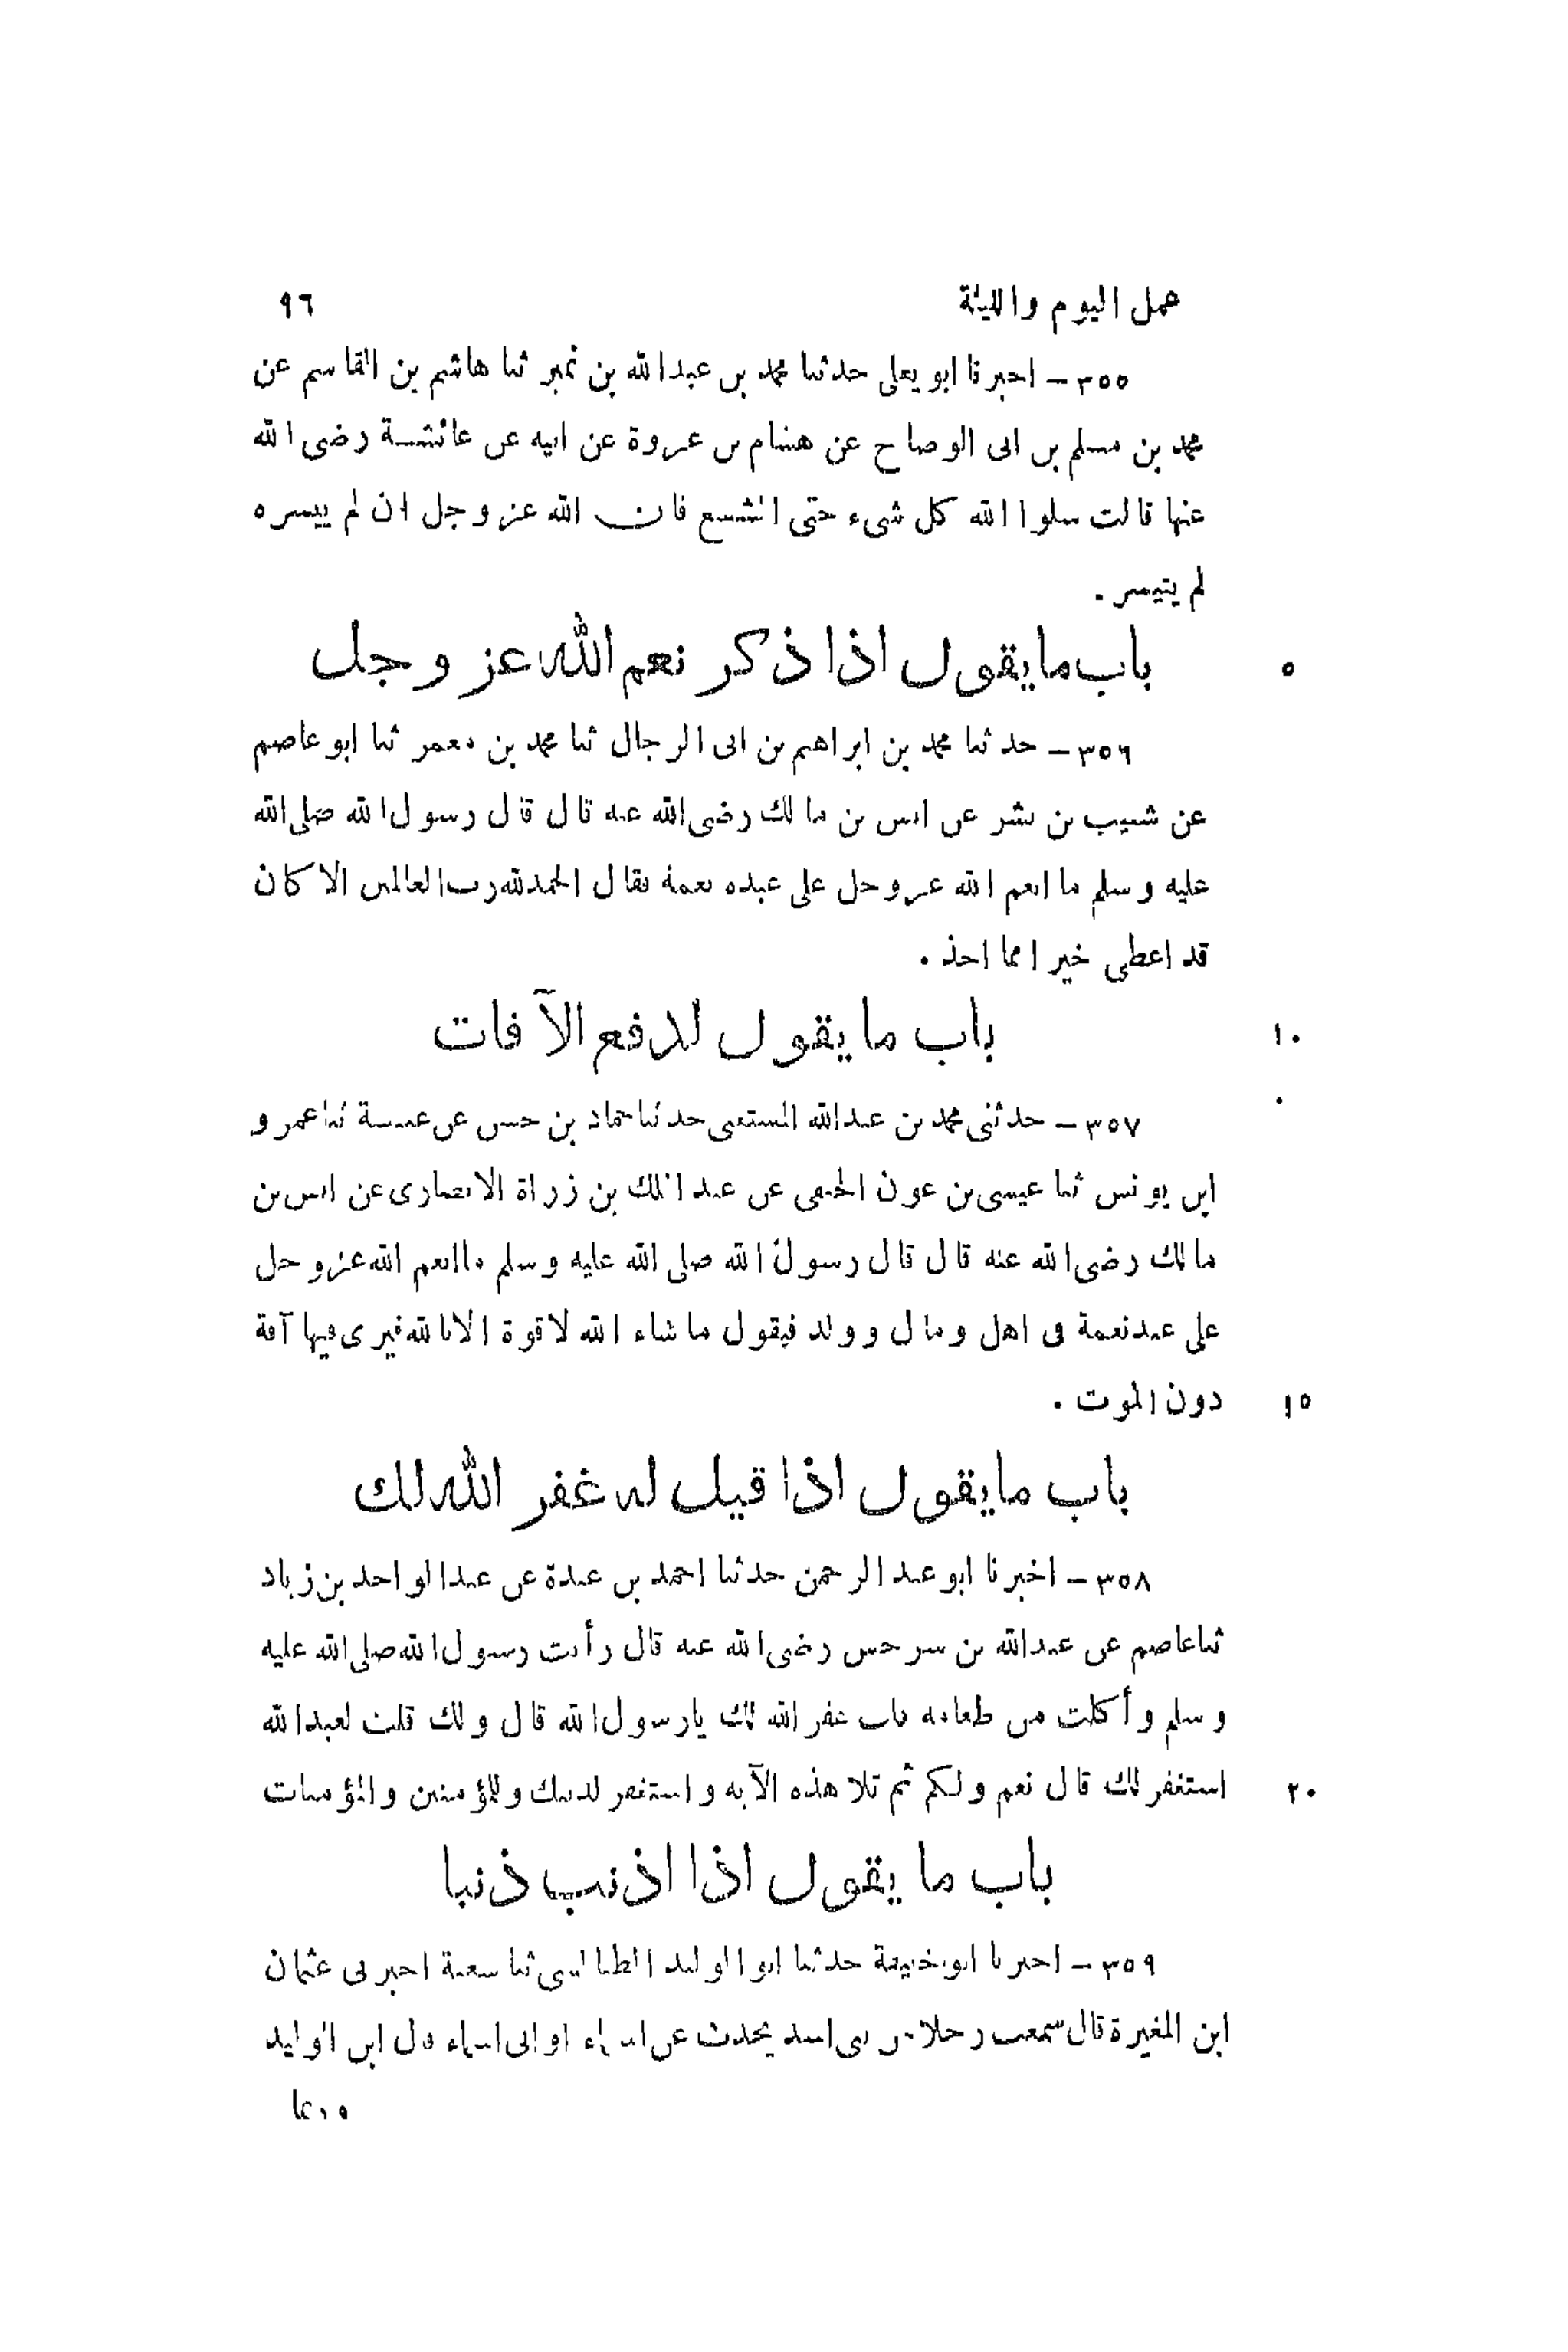 عمل اليوم والليلة ٩٦
٣٥٥ – اخبرنا ابو يعلى حدثنا محمد بن عبدالله بن نمير ثنا هاشم بن القاسم عن
محمد بن مسلم بن ابى الوضاح عن هشام بن عروة عن ابيه عن عائشة رضى الله
عنها قالت سلوا الله كل شىء حتى الشسع فان الله عز وجل ان لم ييسره
لم يتيسر .
باب ما يقول اذا ذكر نعم الله عز وجل ٥
٣٥٦ – حدثنا محمد بن ابراهيم بن ابى الرجال ثنا محمد بن معمر ثنا ابو عاصم
عن شبيب بن بشر عن انس بن مالك رضى الله عنه قال قال رسول الله صلى الله
عليه وسلم ما انعم الله عز وجل على عبده نعمة فقال الحمدلله رب العالمين الا كان
قد اعطى خيرا مما اخذ .
باب ما يقول لدفع الآفات ١٠
٣٥٧ – حدثنى محمد بن عبدالله المستعينى حدثنا حماد بن حسن عن عنبسة ثنا عمر و
ابن يونس ثنا عيسى بن عون الحنفى عن عبد الملك بن زرارة الانصارى عن انس بن
مالك رضى الله عنه قال قال رسول الله صلى الله عليه وسلم ما انعم الله عز وجل
على عبد نعمة فى اهل ومال وولد فيقول ما شاء الله لا قوة الا بالله فيرى فيها آفة
دون الموت . ١٥
باب ما يقول اذا قيل له غفر الله لك
٣٥٨ – اخبرنا ابو عبد الرحمن حدثنا احمد بن عبدة عن عبد الواحد بن زياد
ثنا عاصم عن عبدالله بن سرجس رضى الله عنه قال رأيت رسول الله صلى الله عليه
وسلم وأكلت من طعامه فقلت غفر الله لك يا رسول الله قال ولك قلت لعبد الله
استغفر لك قال نعم ولكم ثم تلا هذه الآية واستغفر لذنبك وللمؤمنين والمؤمنات ٢٠
باب ما يقول اذا اذنب ذنبا
٣٥٩ – اخبرنا ابو خليفة حدثنا ابو الوليد الطيالسى ثنا شعبة اخبرنى عثمان
ابن المغيرة قال سمعت رجلا من بنى اسد يحدث عن اسماء او ابى اسماء قال ابن الوليد